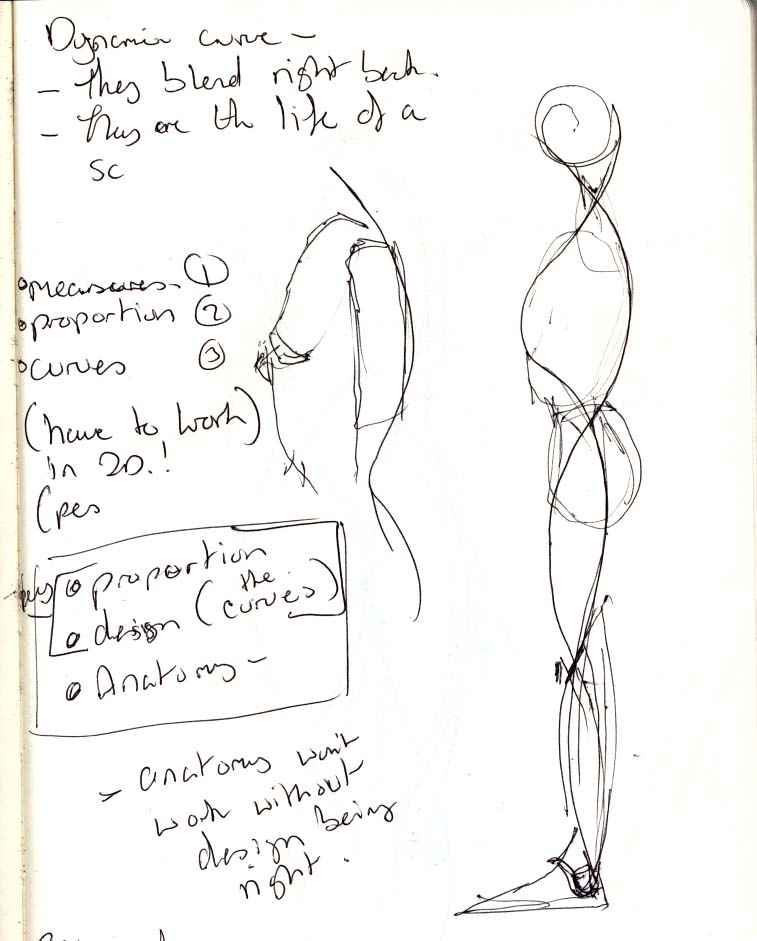 Dynamic curve -
- They blend right back.
- They are the life of a
SC
• measures. ①
• proportion ②
• curves ③
(have to work)
in 2D.!
(pes
• proportion
• design (the curves)
• Anatomy -
- anatomy won't
work without
design being
right.